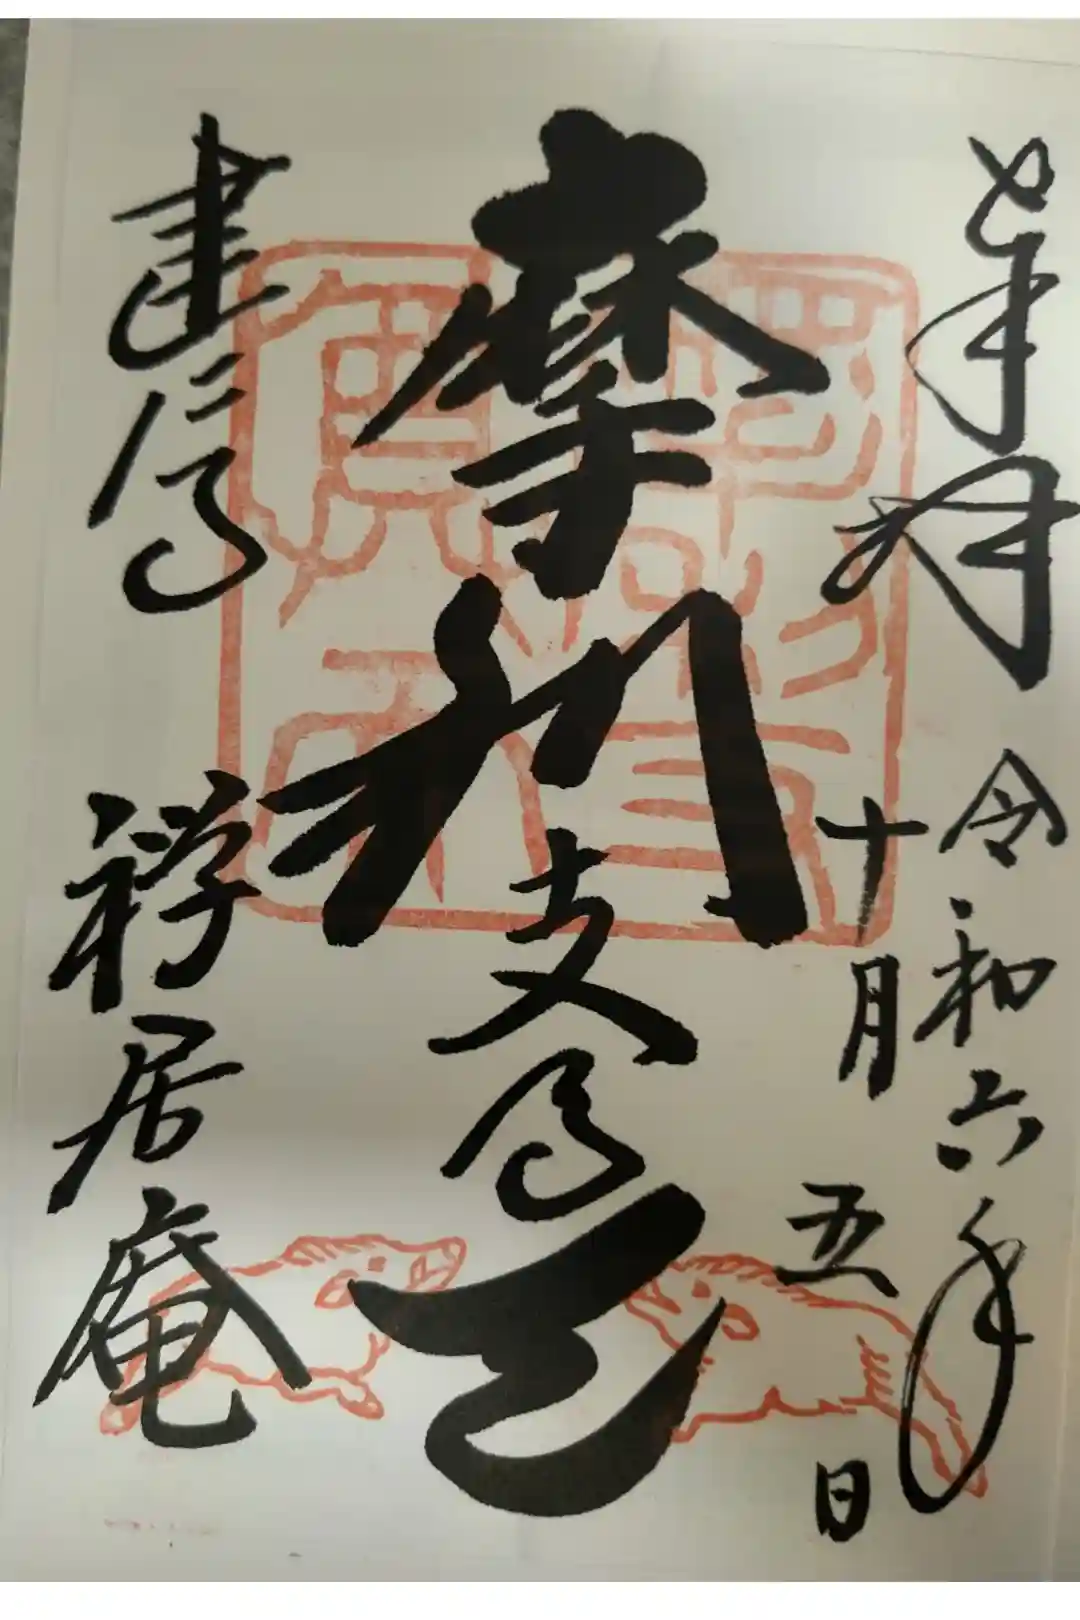 奉拝 令和六年
十月五日
摩利支尊天
建仁寺 禅居庵